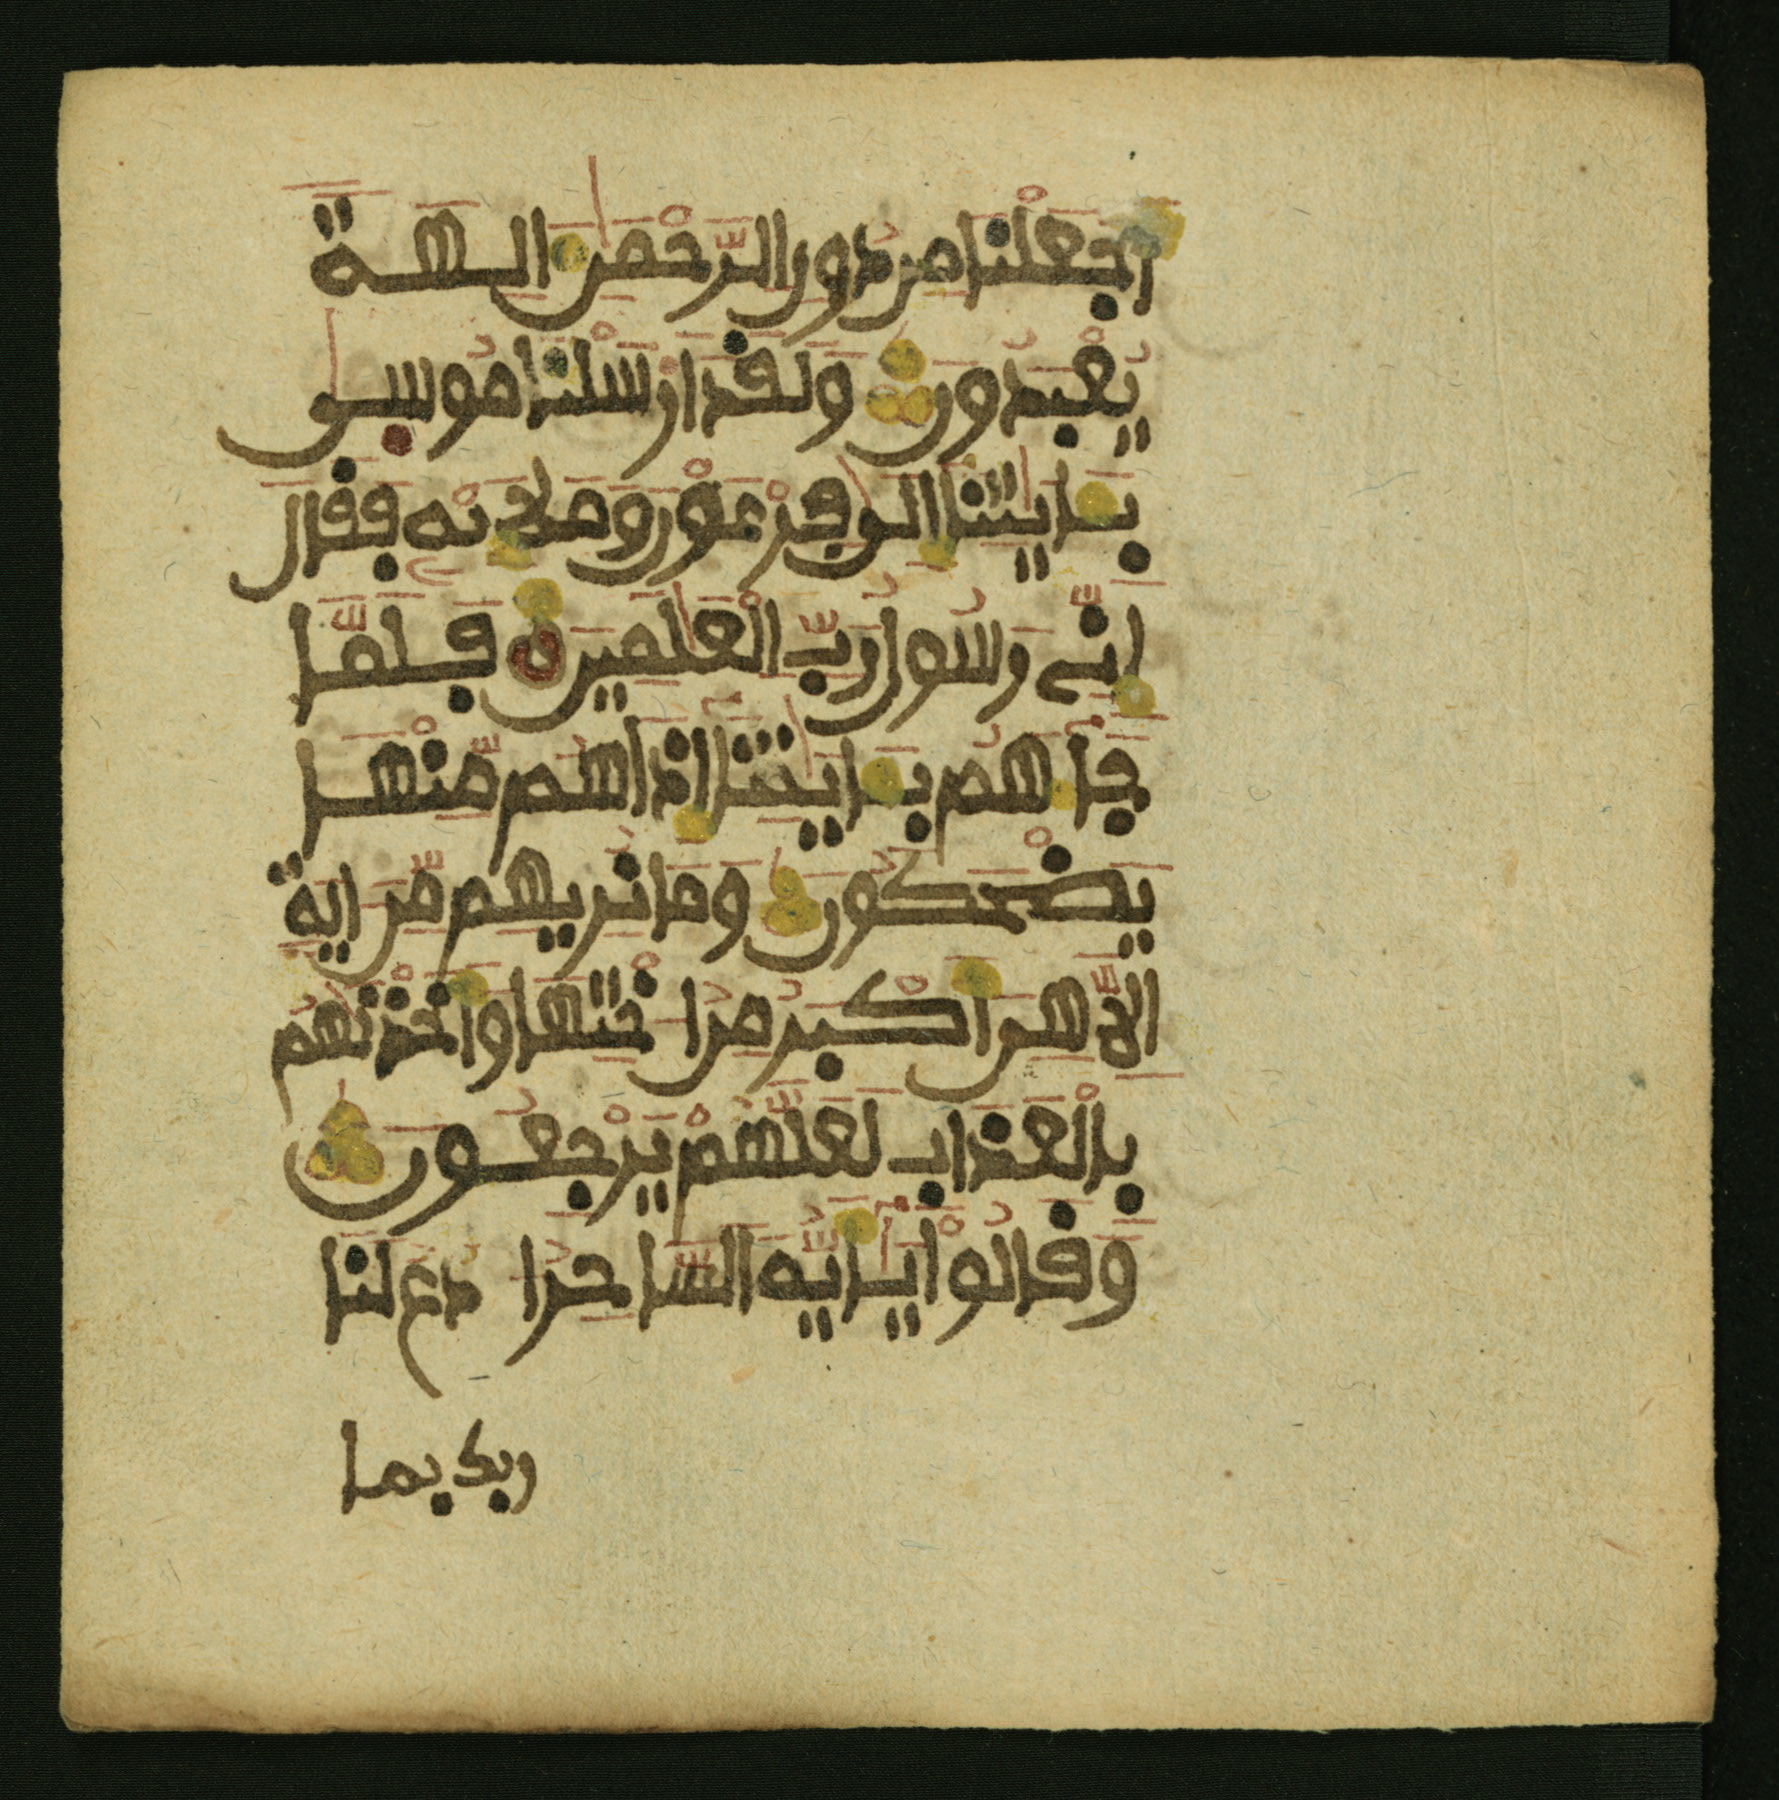 اَجَعَلْنَا مِن دُونِ الرَّحْمَٰنِ ءَالِهَةً
يُعْبَدُونَ وَلَقَدَ اَرْسَلْنَا مُوسٜىٰ
بِـَٔايَٰتِنَا إِلَىٰ فِرْعَوْنَ وَمَلَإِيْهِۦ فَقَالَ
إِنِّے رَسُولُ رَبِّ الْعَٰلَمِينَ فَلَمَّا
جَآءَهُم بِـَٔايَٰتِنَآ إِذَا هُم مِّنْهَا
يَضْحَكُونَ وَمَا نُرِيهِم مِّنَ ايَةٍ
اِلَّا هِىَ أَكْبَرُ مِنُ اخْتِهَا وَأَخَذْنَٰهُم
بِالْعَذَابِ لَعَلَّهُمْ يَرْجِعُونَ
وَقَالُواْ يَٰٓأَيُّهَ السَّاحِرُ ادْعُ لَنَا
ربك بما